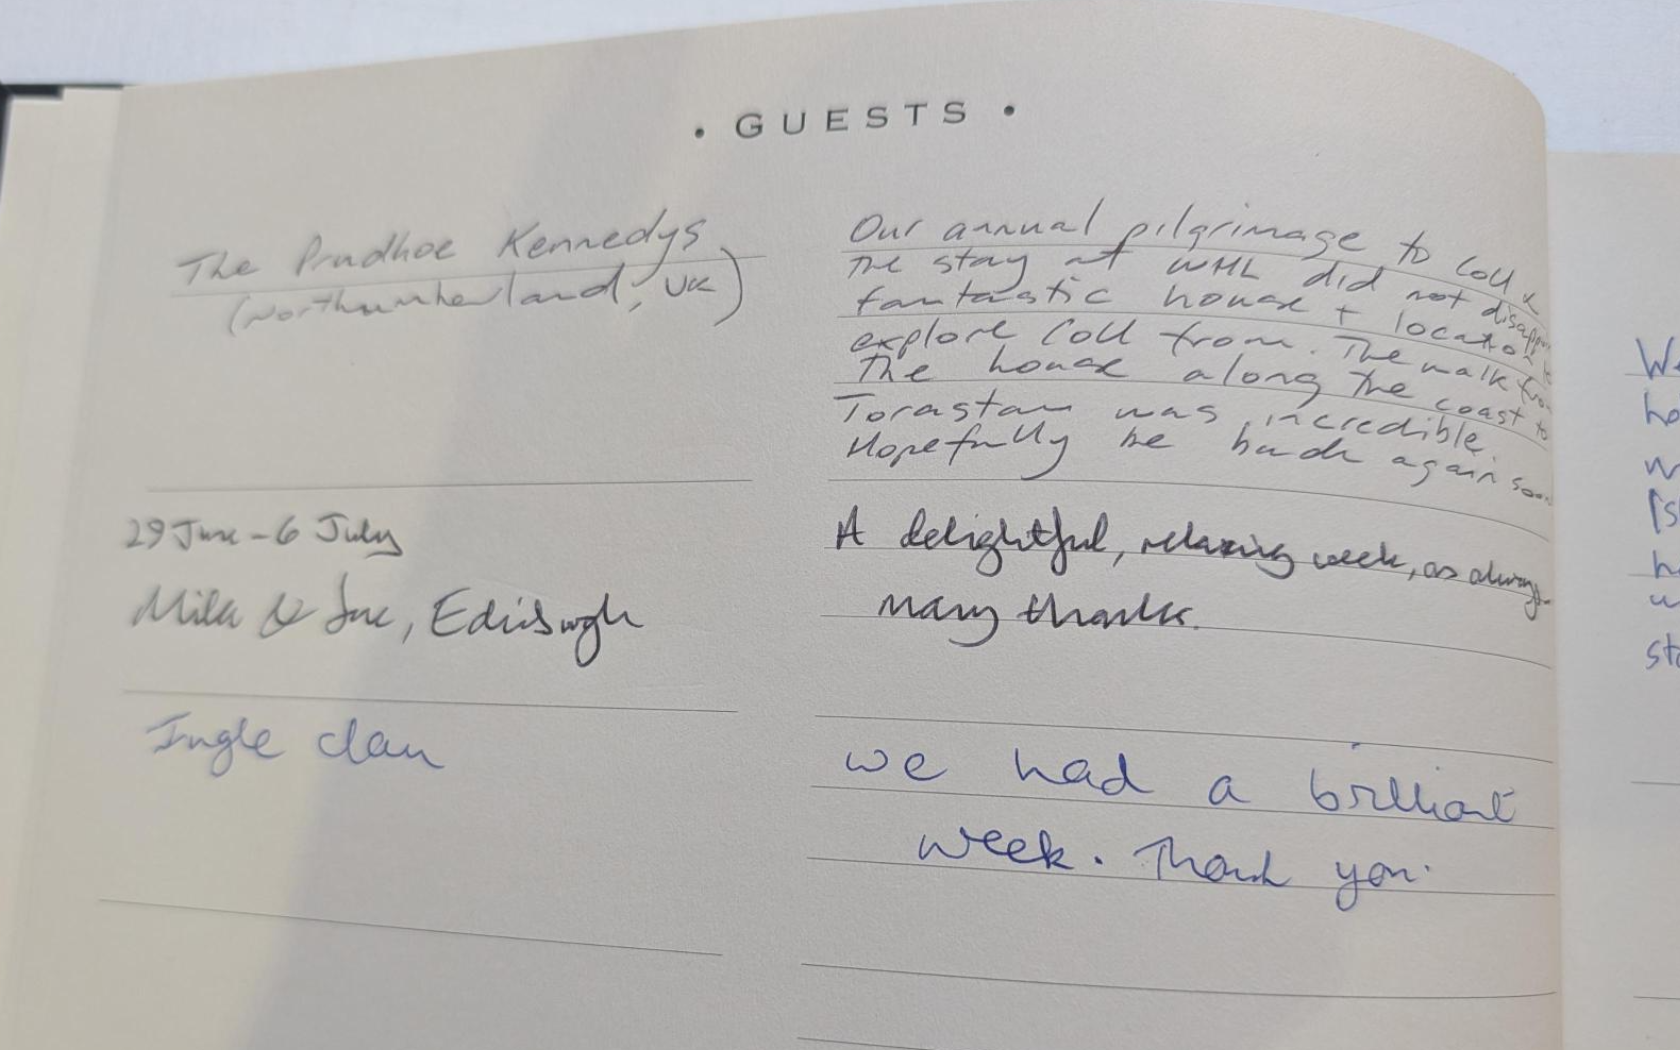 • GUESTS •
The Prudhoe Kennedys
(Northumberland, UK)
Our annual pilgrimage to Coll &
the stay at WML did not
fantastic house + location
explore Coll from. The walk from
the house along the coast to
Torastan was incredible.
Hopefully be back again soon
29 June - 6 July
& Sue, Edinburgh
A delightful, relaxing week, as always
Many thanks.
Ingle clan
we had a brilliant
week. Thank you.